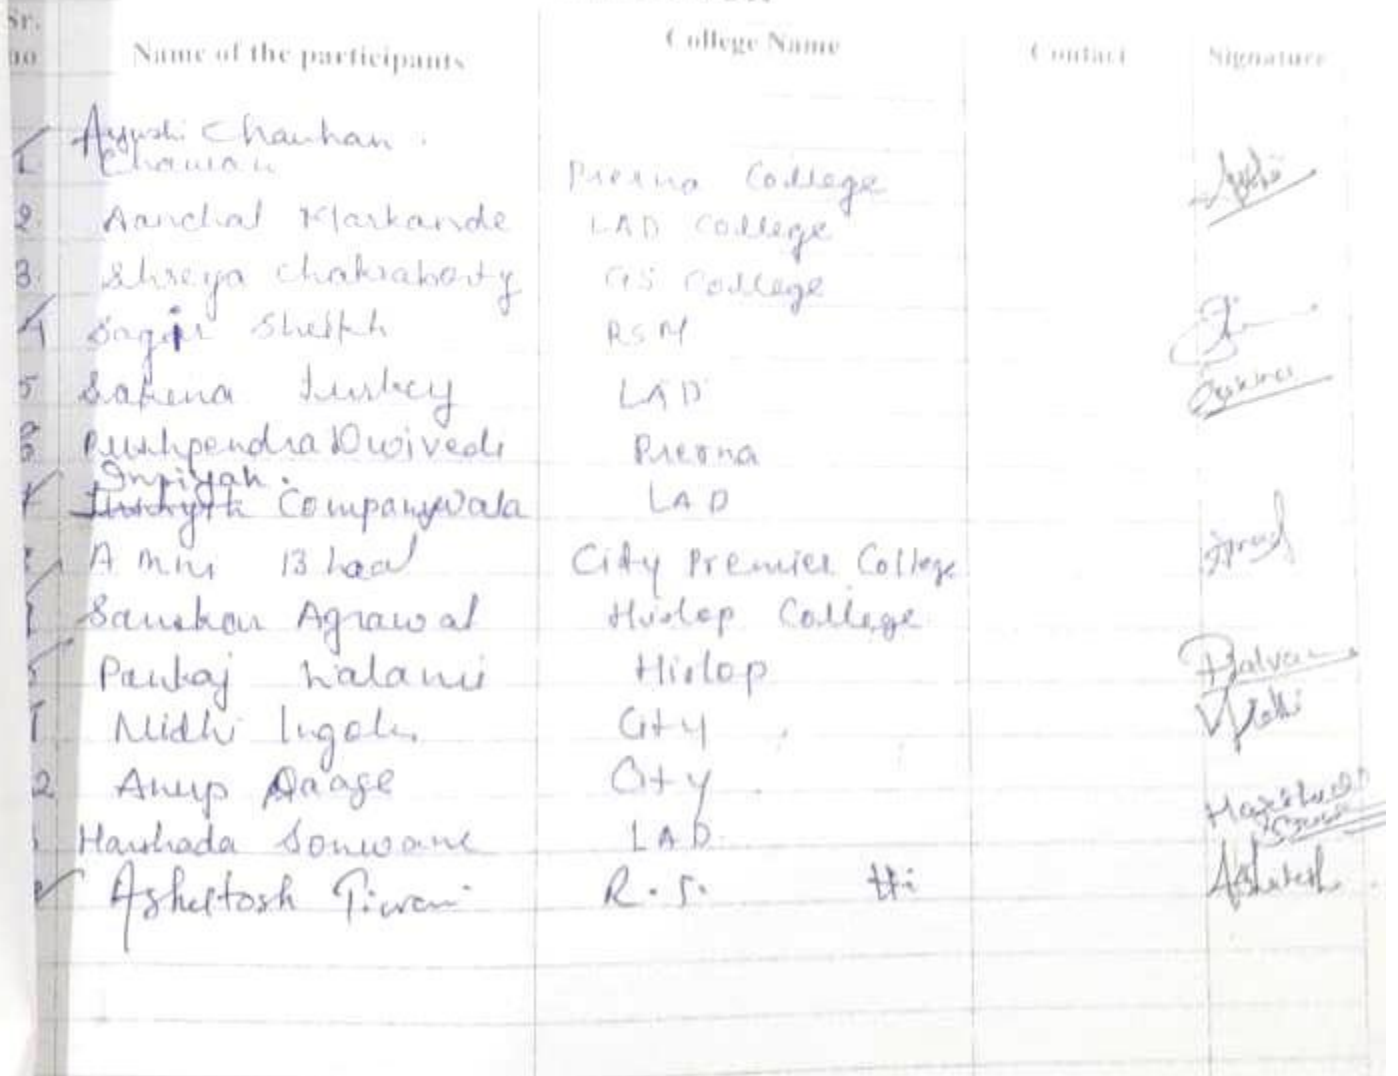 Sr. no Name of the participants College Name Contact Signature
1 Ayushi Chauhan.
Chauan Prerna College
2. Aanchal Markande LAD College
3. Shreya Chakraborty GS College
4 Sagir Sheikh RSM
5 Sakina Turkey LAD
Pushpendra Dwivedi Prerna
Inpiyah.
Companywala LAD
Amni Bhaal City Premier College
Sanskar Agrawal Hislop College
Pankaj Lalani Hislop
Nidhi Ingole City
2 Anup Daage City
Harshada Sonwane LAD
Ashutosh Tiwari R.S. Hi